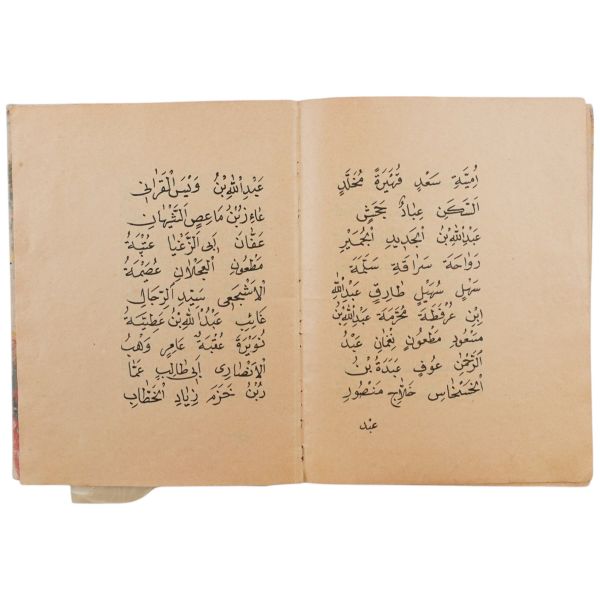 اُمَيَّة سَعْدٍ فُهَيْرَةً مُخَلَّدٍ
السَّكَنِ عِبَادٌ جَحَشٍ
عَبْدِاللهِ بْنُ الْجَدِيدِ الْحُمَيْرِ
رَوَاحَة سَرَاقَةِ سَلَمَة
سَهْلٍ سُهَيْلٍ طَارِقٍ عَبْدِاللهِ
اِبْنِ عُرْفَطَة مُخَرَّمَة عَبْدِاللهِ بْنُ
مَسْعُودٍ مَظْعُونٍ نُعْمَانِ عَبْدُ
الرَّحْمٰنِ عَوْفٍ عَبَدَةُ بْنُ
الْخَسْخَاسِ خَلَّاجِ مَنْصُورِ
عبد
عَبْدِاللهِ بْنُ وَيْسَ الْقَرَانِي
عَاءِزُ بْنُ مَاعِصٍ التَّيِّهَانِ
عَفَّانَ اَبِى الزَّغْبَا عُتْبَةُ
مَظْعُونٍ الْعَجْلَانِ عُصَيْمَةُ
الْاَشْجَعِى سَيِّدِ الرِّجَالِ
غَائِبِ عَبْدُاللهِ بْنُ عَطِيَّةُ
نُوَيْرَةُ عُقْبَةُ عَامِرٍ وَهْبُ
الْاَنْصَارِى اَبِى طَالِبٍ عَمَّا
رُ بْنُ حَزَمَ زِيَادِ الْخَطَّابِ